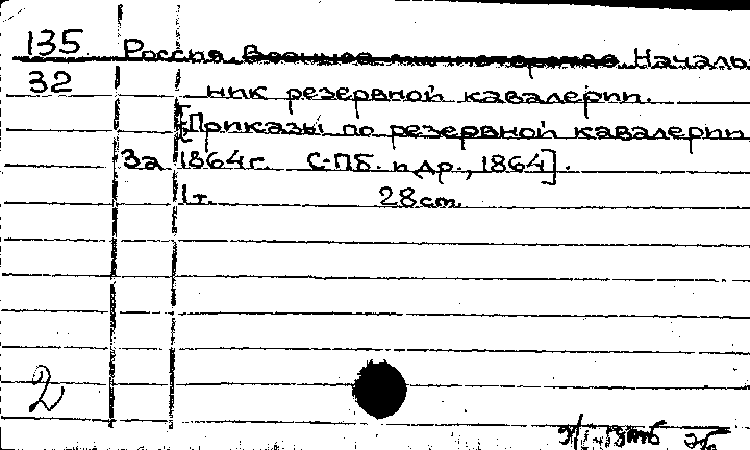 135 Россия. Военное министерство. Началь-
32 ник резервной кавалерии.
[Приказы по резервной кавалерии
За 1864г. С-Пб. и др., 1864].
1 т. 28 cm.
2